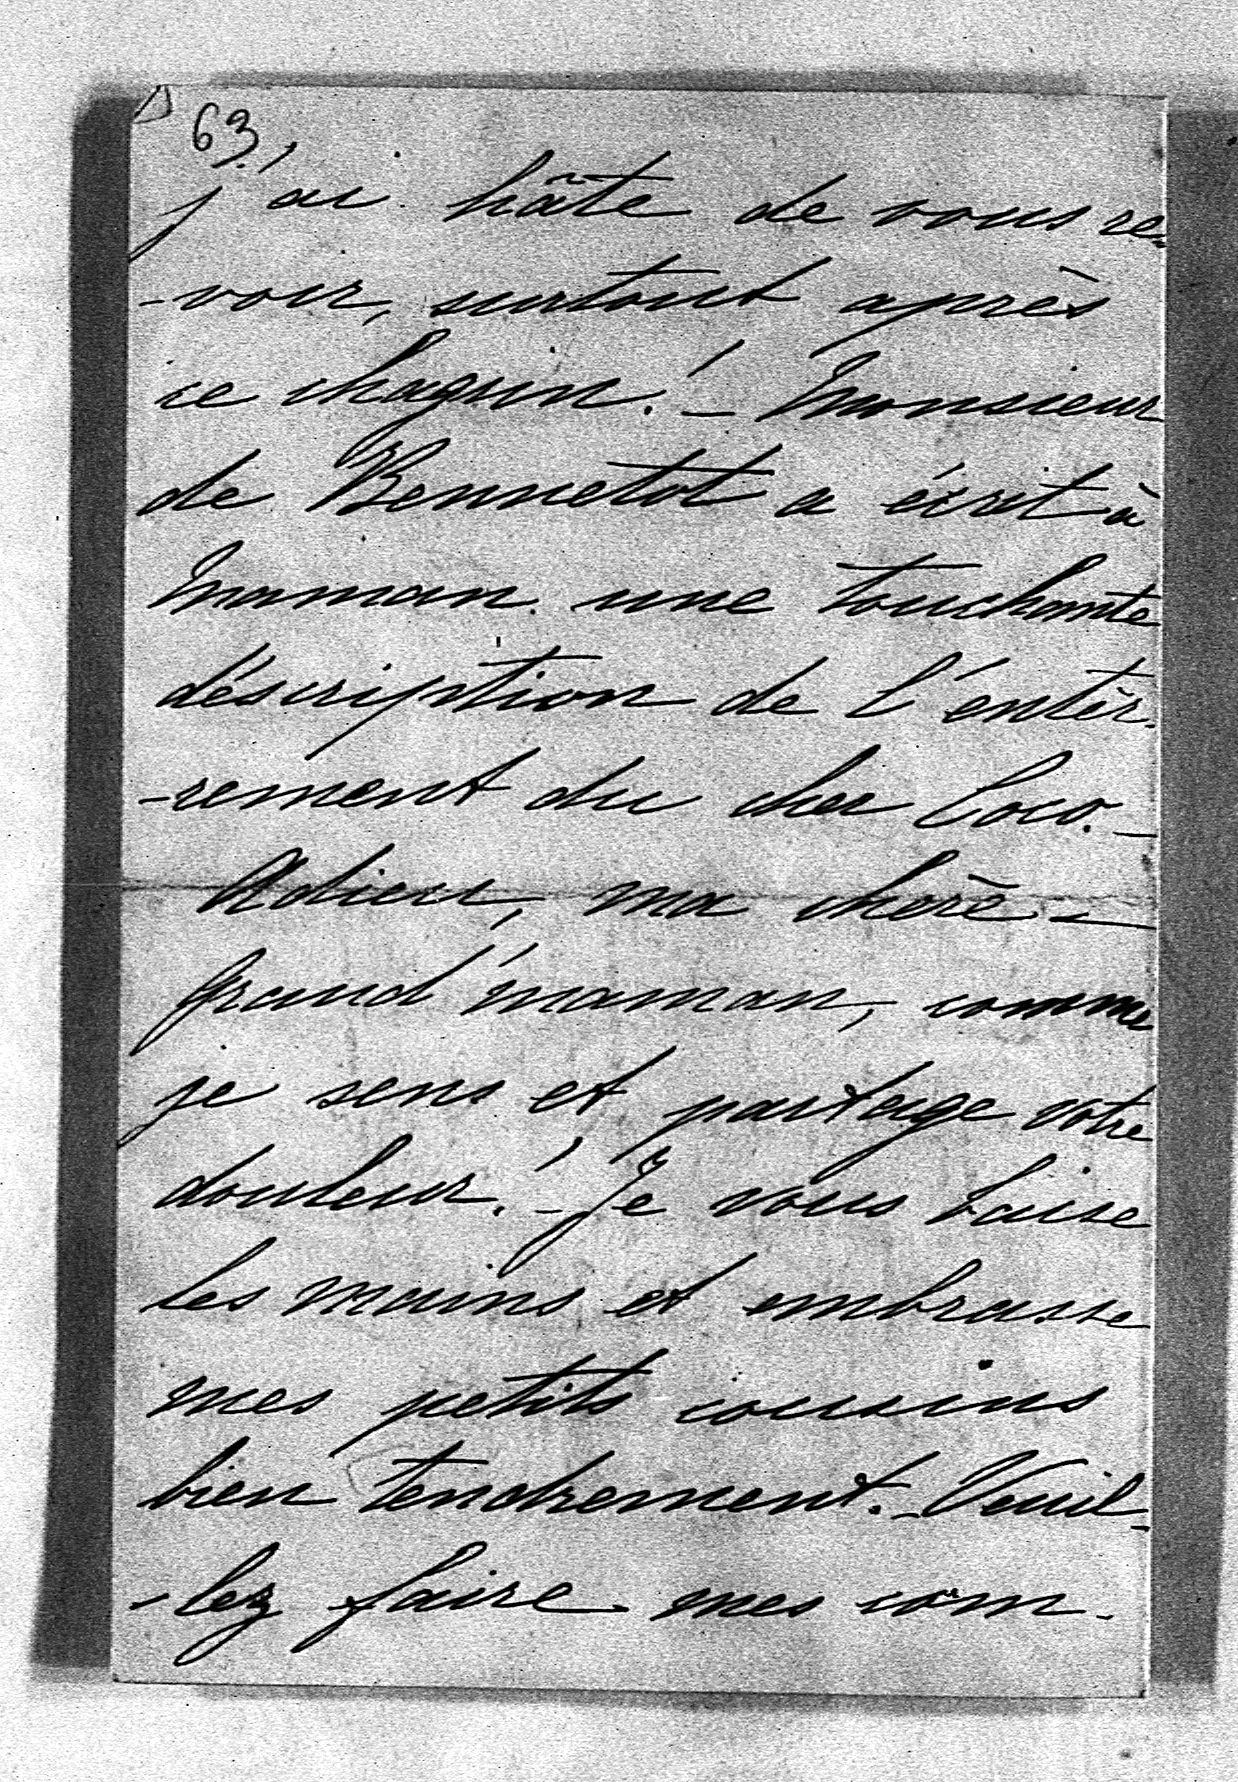 63
j'ai hâte de vous re-
-voir, surtout après
ce chagrin! - Monsieur
de Bennetot a écrit à
Maman une touchante
déscription de l'entèr-
-rement du cher Coco. -
Adieu, ma chère -
Grand'maman, comme
je sens et partage votre
douleur! - Je vous baise
les mains et embrasse
mes petits cousins
bien tendrement. - Veuil-
-lez faire mes com-